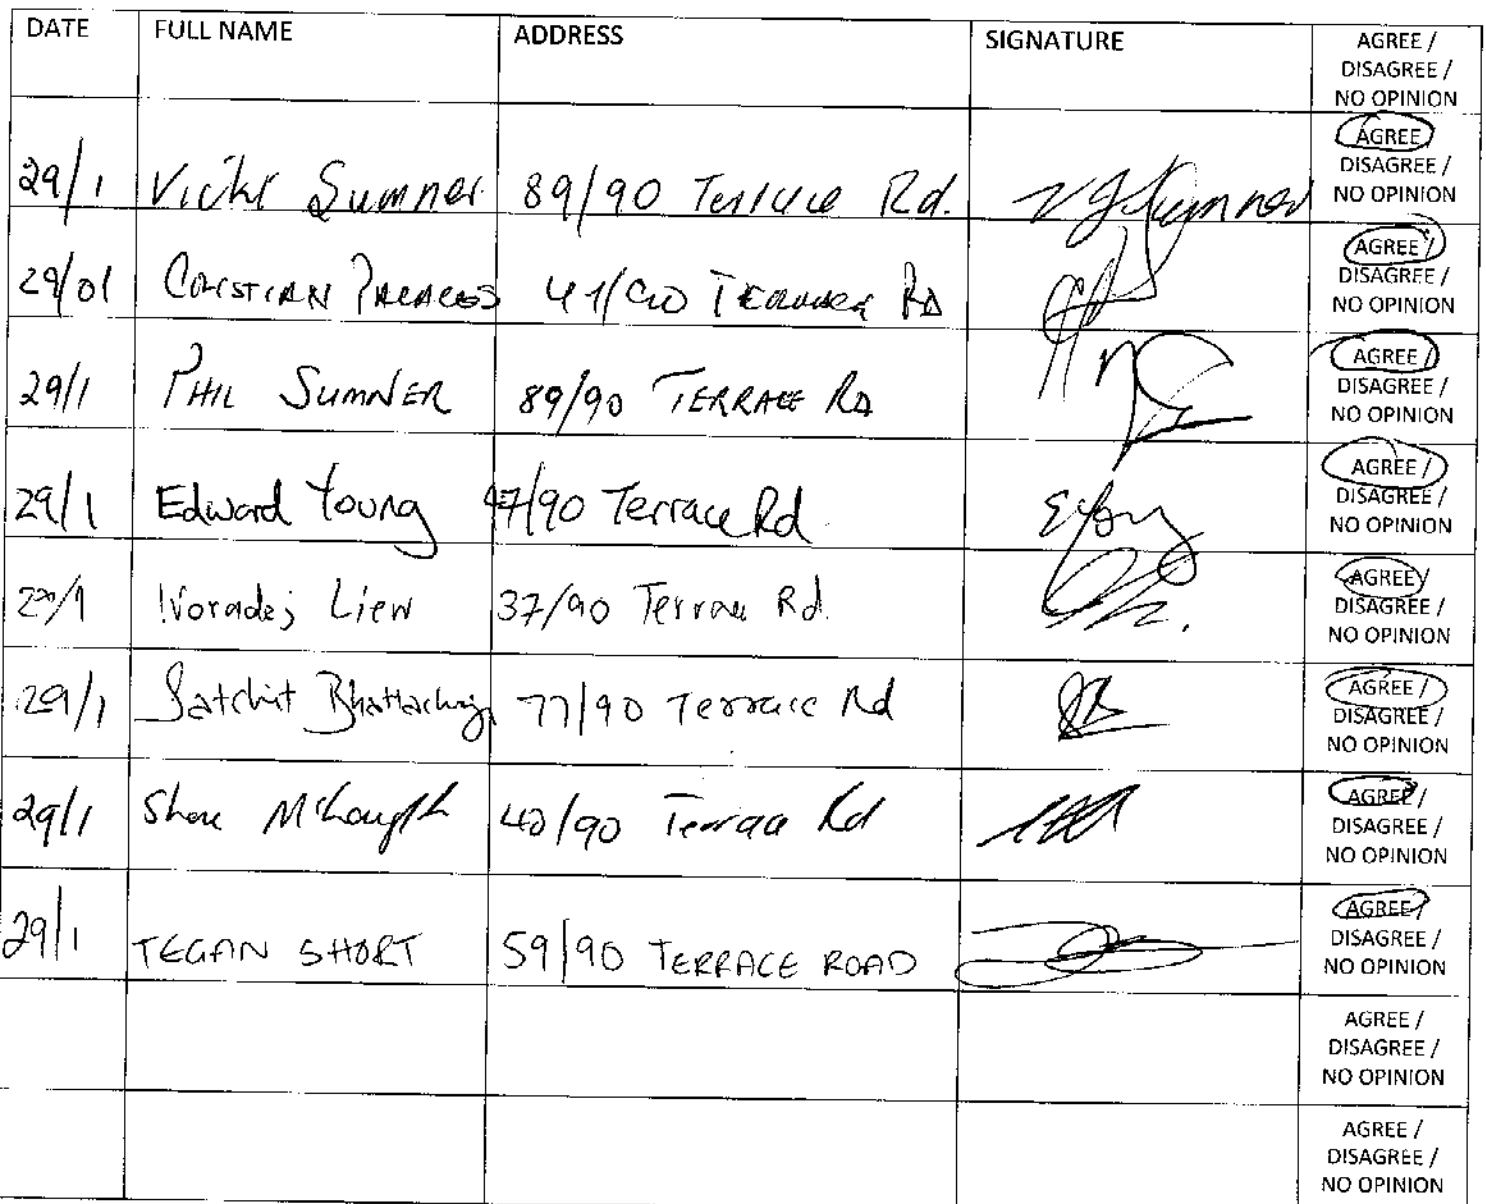 DATE FULL NAME ADDRESS SIGNATURE AGREE /
DISAGREE /
NO OPINION
29/1 Vicki Sumner 89/90 Terrace Rd. AGREE
DISAGREE /
NO OPINION
29/01 41/90 Terrace RD AGREE /
DISAGREE /
NO OPINION
29/1 PHIL SUMNER 89/90 TERRACE RD AGREE /
DISAGREE /
NO OPINION
29/1 Edward Young 47/90 Terrace Rd AGREE /
DISAGREE /
NO OPINION
29/1 Voradej Liew 37/90 Terrace Rd. AGREE /
DISAGREE /
NO OPINION
29/1 Satchit 77/90 Terrace Rd AGREE /
DISAGREE /
NO OPINION
29/1 40/90 Terrace Rd AGREE /
DISAGREE /
NO OPINION
29/1 TEGAN SHORT 59/90 TERRACE ROAD AGREE /
DISAGREE /
NO OPINION
AGREE /
DISAGREE /
NO OPINION
AGREE /
DISAGREE /
NO OPINION